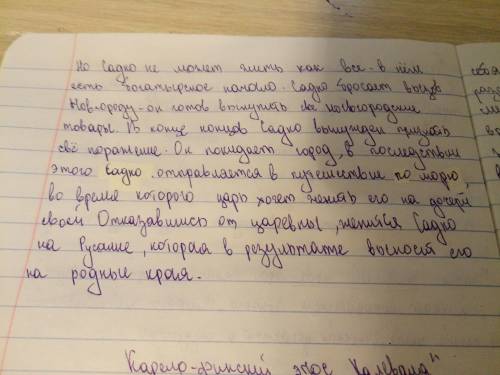 Но Садко не может жить как все - в нём
есть богатырское начало. Садко бросает вызов
Нов-городу - он готов выкупить все новгородские
товары. В конце концов Садко вынужден признать
своё поражение. Он покидает город, в последствии
этого Садко отправляется в путешествие по морю,
во время которого царь хочет женить его на дочери
своей. Отказавшись от царевны, женился Садко
на Русалке, которая в результате выносит его
на родные края.
Карело-финский эпос Калевала"
себя